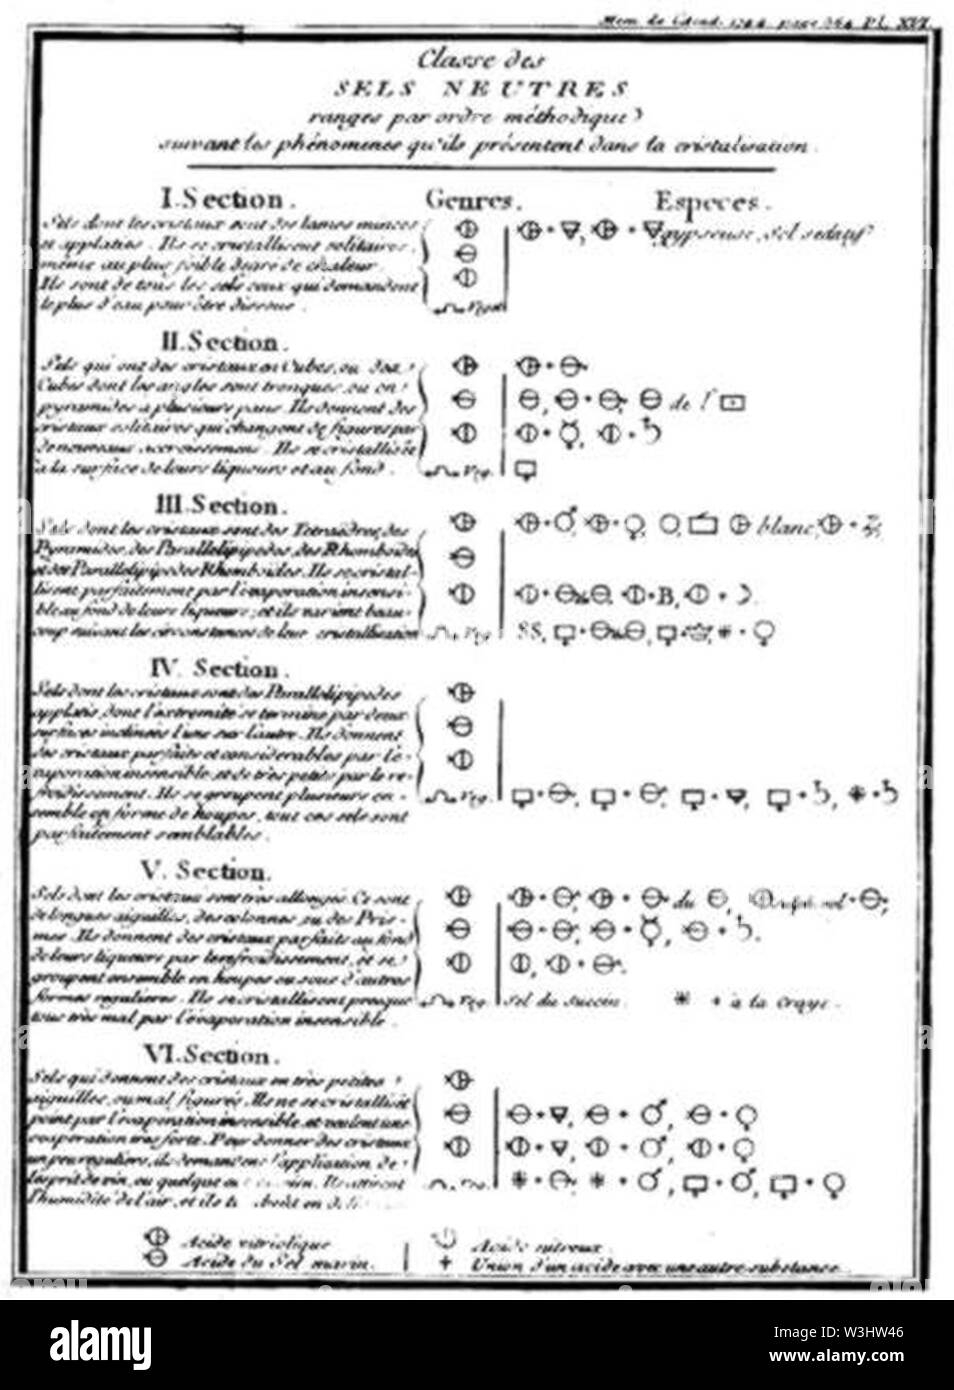 Mem. de l'Acad. 1744. page 364 Pl. XVI.
Classe des
SELS NEUTRES
rangés par ordre méthodique
suivant les phénomenes qu'ils présentent dans la cristalisation.
I. Section. Genres. Especes.
Sels dont les cristaux sont des lames minces
et applaties. Ils se cristallisent solitaires,
même au plus foible degré de chaleur.
Ils sont de tous les sels ceux qui demandent
le plus d'eau pour être dissous.
gypseuse, Sel sedatif
Veget.
II. Section.
Sels qui ont des cristaux en Cubes, ou des
Cubes dont les angles sont tronqués, ou en
pyramides a plusieurs pans. Ils donnent des
cristaux solitaires qui changent de figures par
de nouveaux accroissemens. Ils se cristallisent
à la surface de leurs liqueurs et au fond.
de l'
Veg.
III. Section.
Sels dont les cristaux sont des Tetraëdres, des
Pyramides, des Parallelipipedes, des Rhomboides
et des Parallelipipedes Rhomboides. Ils se cristal-
lisent parfaitement par l'évaporation insensi-
ble au fond de leurs liqueurs, et ils varient beau-
coup suivant les circonstances de leur cristallisation
blanc,
B,
SS,
Veg.
IV. Section.
Sels dont les cristaux sont des Parallelipipedes
applatis, dont l'extremité se termine par deux
surfaces inclinées l'une sur l'autre. Ils donnent
des cristaux parfaits et considerables par l'é-
vaporation insensible, et de très petits par le re-
froidissement. Ils se groupent plusieurs en-
semble en forme de houpes, tout ces sels sont
parfaitement semblables.
Veg.
V. Section.
Sels dont les cristaux sont très allongés. Ce sont
de longues aiguilles, des colonnes, ou des Pris-
mes. Ils donnent des cristaux parfaits au fond
de leurs liqueurs par le refroidissement, et se
groupent ensemble en houpes ou sous d'autres
formes regulieres. Ils se cristallisent presque
tous très mal par l'évaporation insensible.
du
Veg. Sel du Succin. à la Craye.
VI. Section.
Sels qui donnent des cristaux en très petites
aiguilles, ou mal figurés. Ils ne se cristallisent
point par l'évaporation insensible, et veulent une
evaporation très forte. Pour donner des cristaux
un peu reguliers, ils demandent l'application de
l'esprit de vin, ou quelque Ils attirent
l'humidité de l'air, et ils
Acide vitriolique
Acide du Sel marin.
Acide nitreux.
+ Union d'un acide avec une autre substance.
alamy
Image ID: W3HW46
www.alamy.com